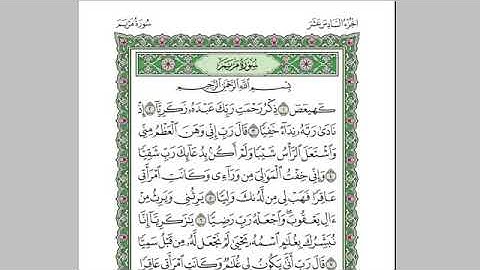 سُورَةُ مَرْيَمَ
الجُزْءُ السَّادِسَ عَشَرَ
سُورَةُ مَرْيَمَ
بِسْمِ اللَّهِ الرَّحْمَٰنِ الرَّحِيمِ
كٓهيعٓصٓ ۝١ ذِكْرُ رَحْمَتِ رَبِّكَ عَبْدَهُۥ زَكَرِيَّآ ۝٢ إِذْ
نَادَىٰ رَبَّهُۥ نِدَآءً خَفِيًّا ۝٣ قَالَ رَبِّ إِنِّي وَهَنَ ٱلْعَظْمُ مِنِّي
وَٱشْتَعَلَ ٱلرَّأْسُ شَيْبًا وَلَمْ أَكُنۢ بِدُعَآئِكَ رَبِّ شَقِيًّا
۝٤ وَإِنِّي خِفْتُ ٱلْمَوَٰلِيَ مِن وَرَآءِي وَكَانَتِ ٱمْرَأَتِي
عَاقِرًا فَهَبْ لِي مِن لَّدُنكَ وَلِيًّا ۝٥ يَرِثُنِي وَيَرِثُ مِنْ
ءَالِ يَعْقُوبَ ۖ وَٱجْعَلْهُ رَبِّ رَضِيًّا ۝٦ يَٰزَكَرِيَّآ إِنَّا
نُبَشِّرُكَ بِغُلَٰمٍ ٱسْمُهُۥ يَحْيَىٰ لَمْ نَجْعَل لَّهُۥ مِن قَبْلُ سَمِيًّا
۝٧ قَالَ رَبِّ أَنَّىٰ يَكُونُ لِي غُلَٰمٌ وَكَانَتِ ٱمْرَأَتِي عَاقِرًا